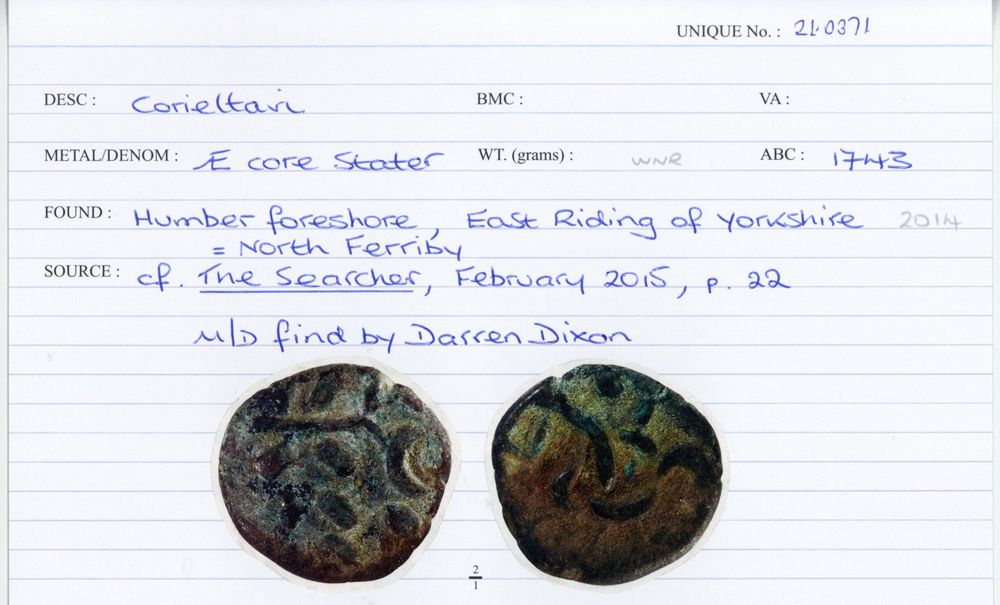 UNIQUE No. : 21.0371
DESC : Corieltavi BMC : VA :
METAL/DENOM : Æ core Stater WT. (grams) : WNR ABC : 1743
FOUND : Humber foreshore, East Riding of Yorkshire 2014
= North Ferriby
SOURCE : cf. The Searcher, February 2015, p. 22
M/D find by Darren Dixon
2
1